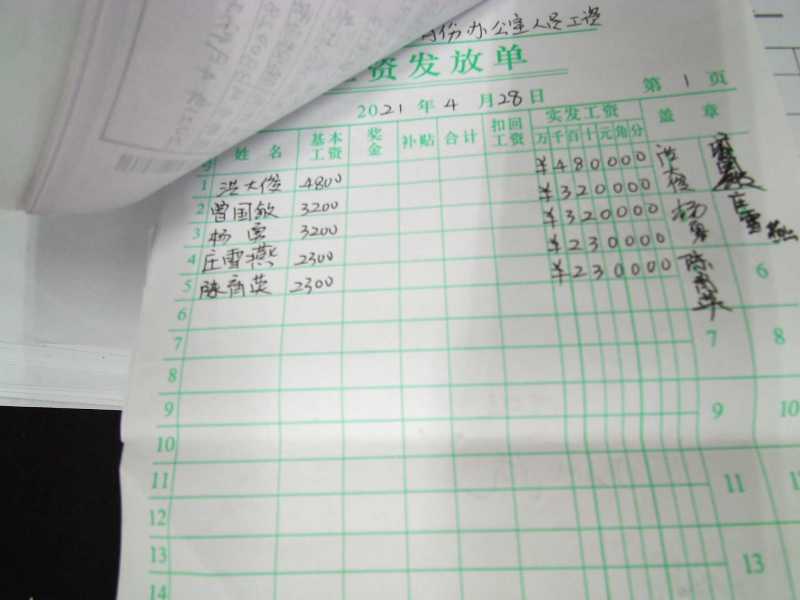 月份办公室人员工资
资发放单
2021年4月28日 第1页
姓名 基本工资 奖金 补贴 合计 扣回工资 实发工资 万千百十元角分 盖章
1 洪大俊 4800 ¥480000 洪大俊
2 曾国敏 3200 ¥320000 曾国敏
3 杨勇 3200 ¥320000 杨勇
4 庄雪燕 2300 ¥230000 庄雪燕
5 陈育英 2300 ¥230000 陈育英 6
6
7 7 8
8
9 9 10
10
11 11
12
13 13
14